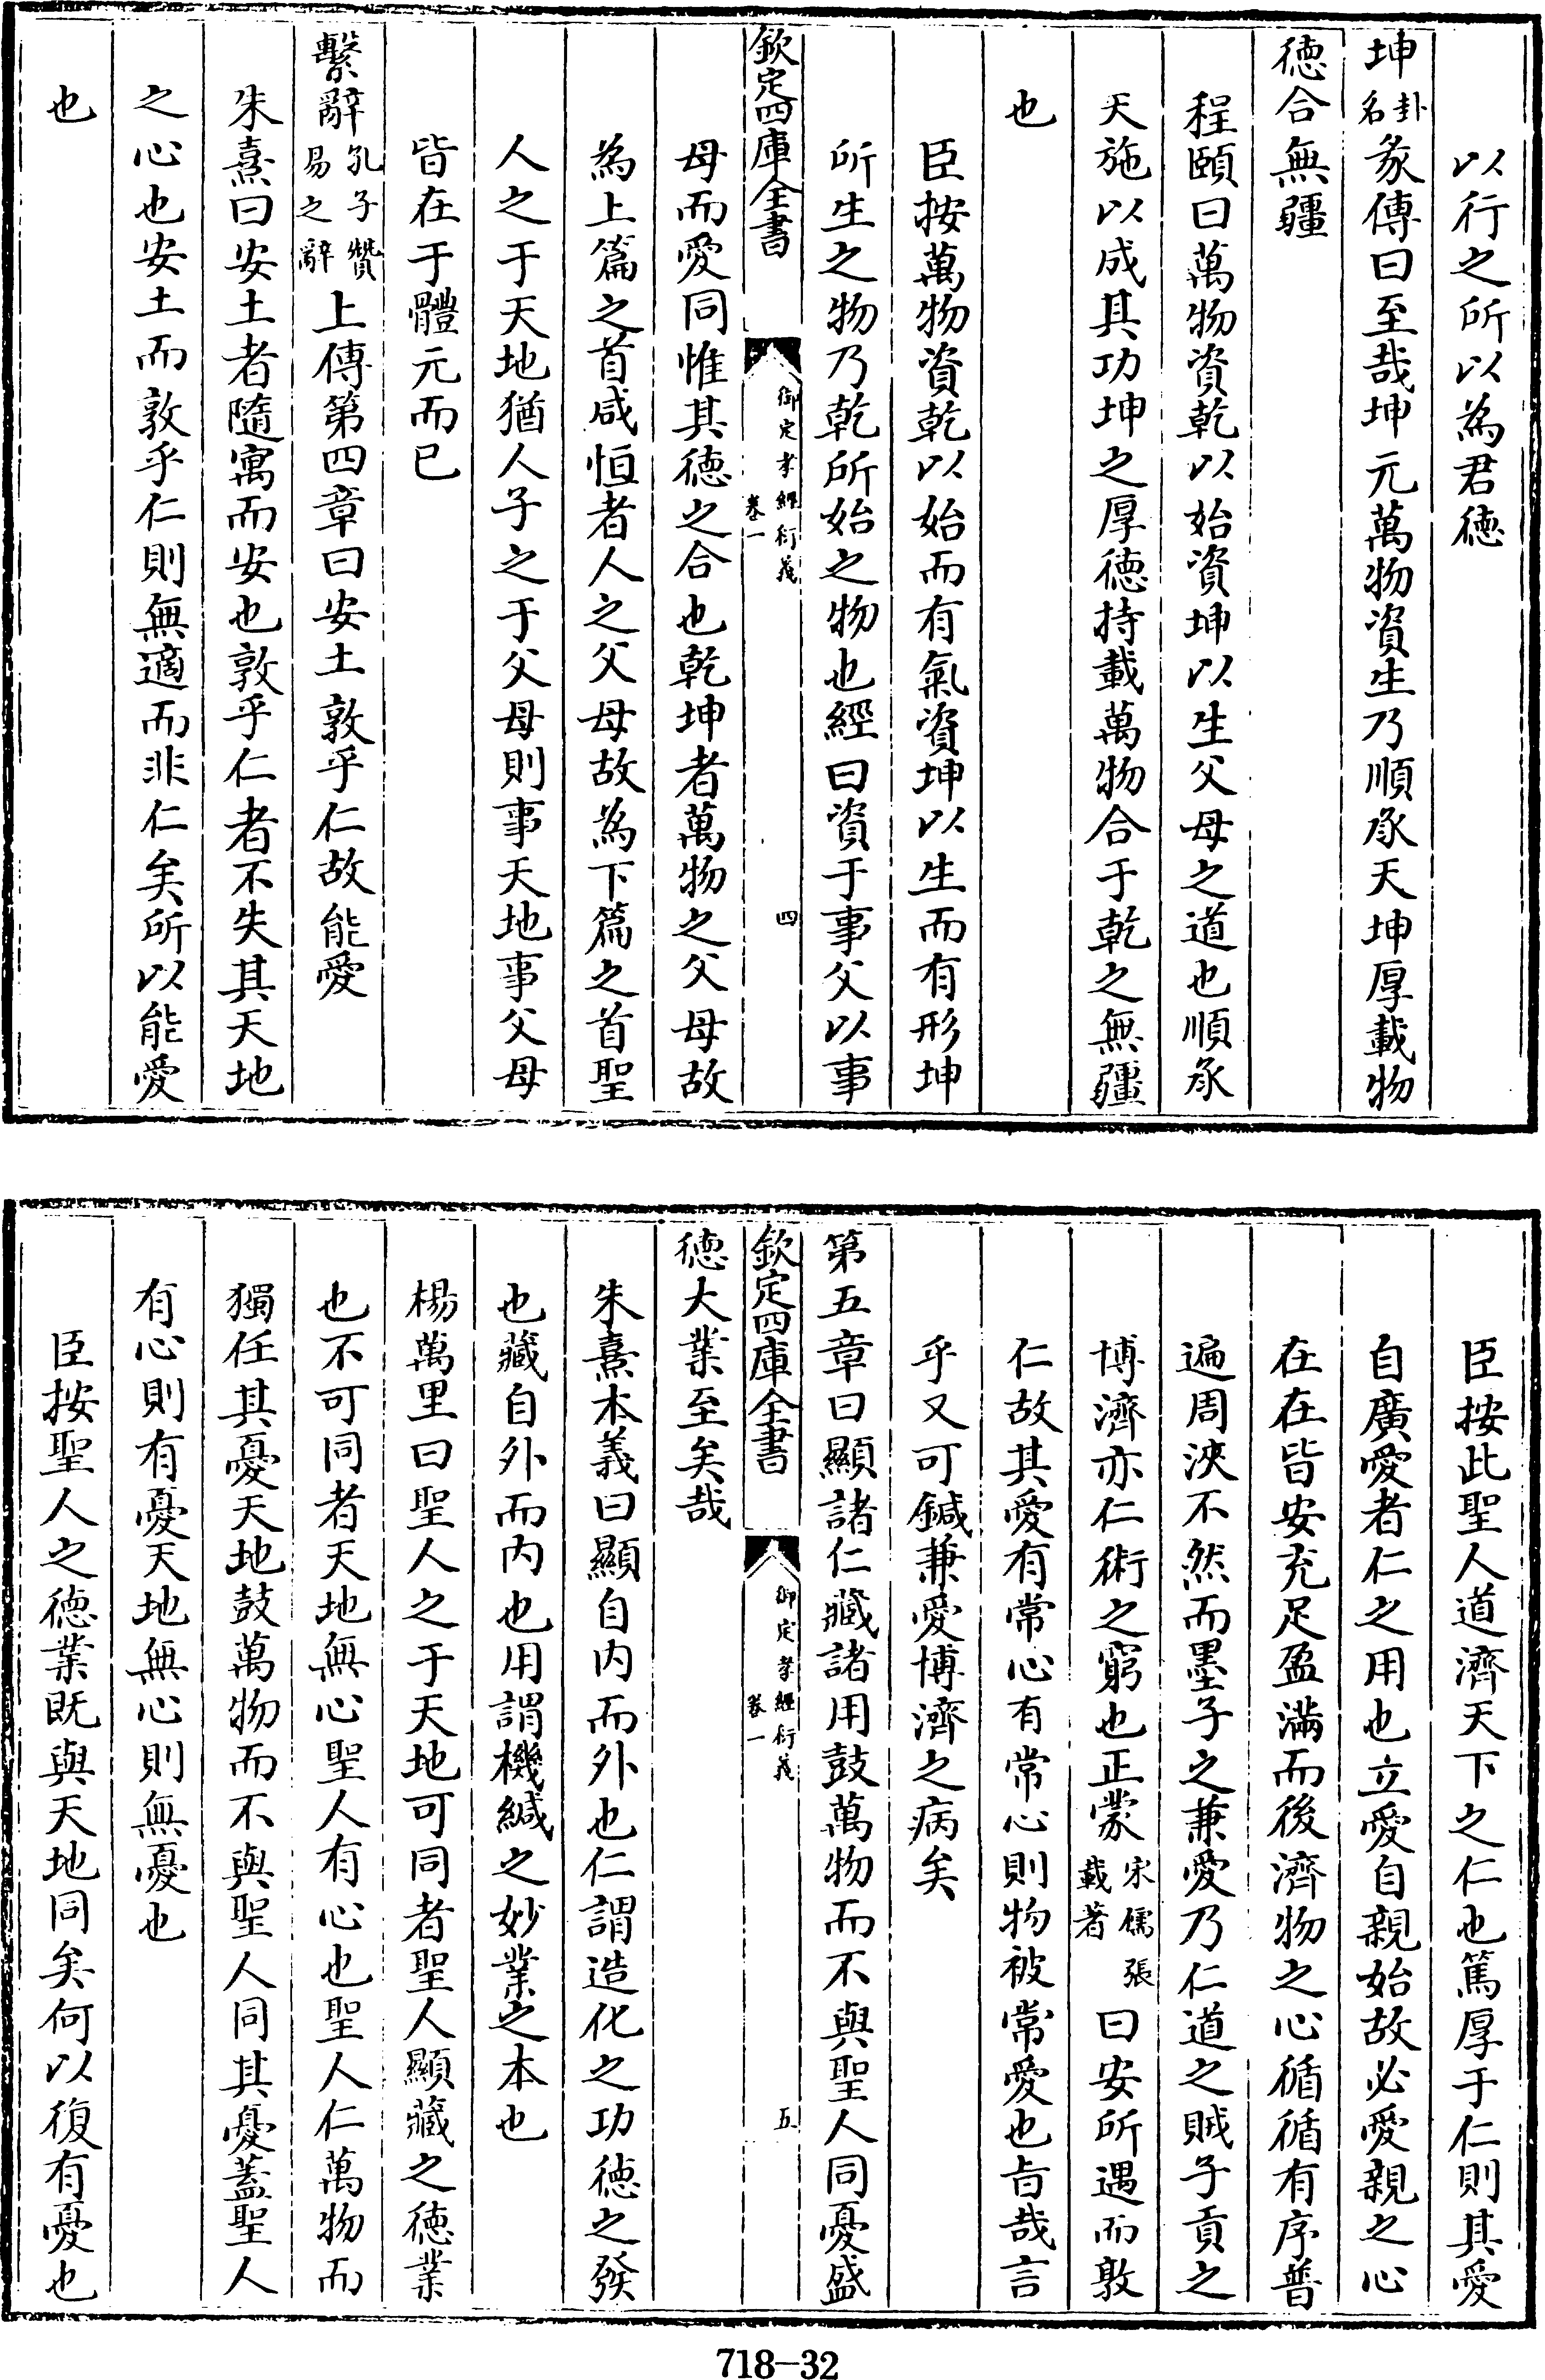 以行之所以為君德
坤卦名彖傳曰至哉坤元萬物資生乃順承天坤厚載物
德合無疆
程頤曰萬物資乾以始資坤以生父母之道也順承
天施以成其功坤之厚德持載萬物合于乾之無疆
也
臣按萬物資乾以始而有氣資坤以生而有形坤
所生之物乃乾所始之物也經曰資于事父以事
欽定四庫全書
御定孝經衍義
卷一
四
母而愛同惟其德之合也乾坤者萬物之父母故
為上篇之首咸恒者人之父母故為下篇之首聖
人之于天地猶人子之于父母則事天地事父母
皆在于體元而已
繫辭孔子贊易之辭上傳第四章曰安土敦乎仁故能愛
朱熹曰安土者隨寓而安也敦乎仁者不失其天地
之心也安土而敦乎仁則無適而非仁矣所以能愛
也
臣按此聖人道濟天下之仁也篤厚于仁則其愛
自廣愛者仁之用也立愛自親始故必愛親之心
在在皆安充足盈滿而後濟物之心循循有序普
遍周浹不然而墨子之兼愛乃仁道之賊子貢之
博濟亦仁術之窮也正蒙宋儒張載著曰安所遇而敦
仁故其愛有常心有常心則物被常愛也旨哉言
乎又可鍼兼愛博濟之病矣
第五章曰顯諸仁藏諸用鼓萬物而不與聖人同憂盛
欽定四庫全書
御定孝經衍義
卷一
五
德大業至矣哉
朱熹本義曰顯自内而外也仁謂造化之功德之發
也藏自外而内也用謂機緘之妙業之本也
楊萬里曰聖人之于天地可同者聖人顯藏之德業
也不可同者天地無心聖人有心也聖人仁萬物而
獨任其憂天地鼓萬物而不與聖人同其憂蓋聖人
有心則有憂天地無心則無憂也
臣按聖人之德業既與天地同矣何以復有憂也
718-32